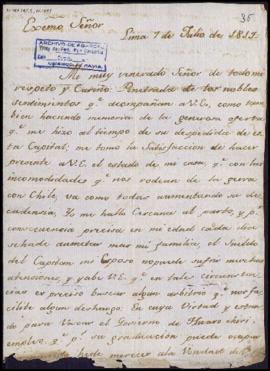 35
Excmo. Señor
Lima 7 de Julio de 1817.
ARCHIVO DE
Mi muy venerado Señor de todo mi
respeto y Cariño: Penetrada de los nobles
sentimientos qe. acompañan a V.E. como tam-
bien haciendo memoria de la generosa oferta
qe. me hizo al tiempo de su despedida de
esta Capital; me tomo la Satisfaccion de hacer
presente a V.E. el estado de mi casa, qe. con las
incomodidades qe. nos rodean de la gerra
con Chile, va como todas aumentando su de-
cadencia. Yo me hallo Cercana al parto, y pr.
consecuencia precisa en mi edad cada dia
se ha de aumentar mas mi familia, el Sueldo
del Capitan mi Esposo no puede sufrir muchas
atenciones, y sabe V.E. qe. en tales circunstan-
cias es preciso buscar algun arbitrio qe. nos fa-
cilite algun deshaogo. En cuya Virtud y estan-
do para Vacar el Govierno de
empleo qe. pr. su graduacion puede ocupar
merecer ala